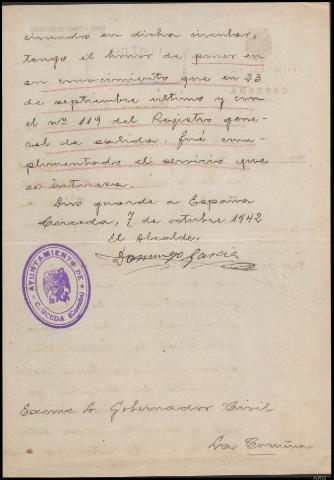 cionado en dicha circular,
tengo el honor de poner en
su conocimiento que en 23
de septiembre último y con
el nº 119 del Registro gene-
ral de salida, fué cum-
plimentado el servicio que
se interesa.
Dios guarde a España
Cerceda, 7 de octubre 1942
El Alcalde,
Domingo García
AYUNTAMIENTO DE
CERCEDA (Coruña)
Excmo Sr. Gobernador Civil
La Coruña